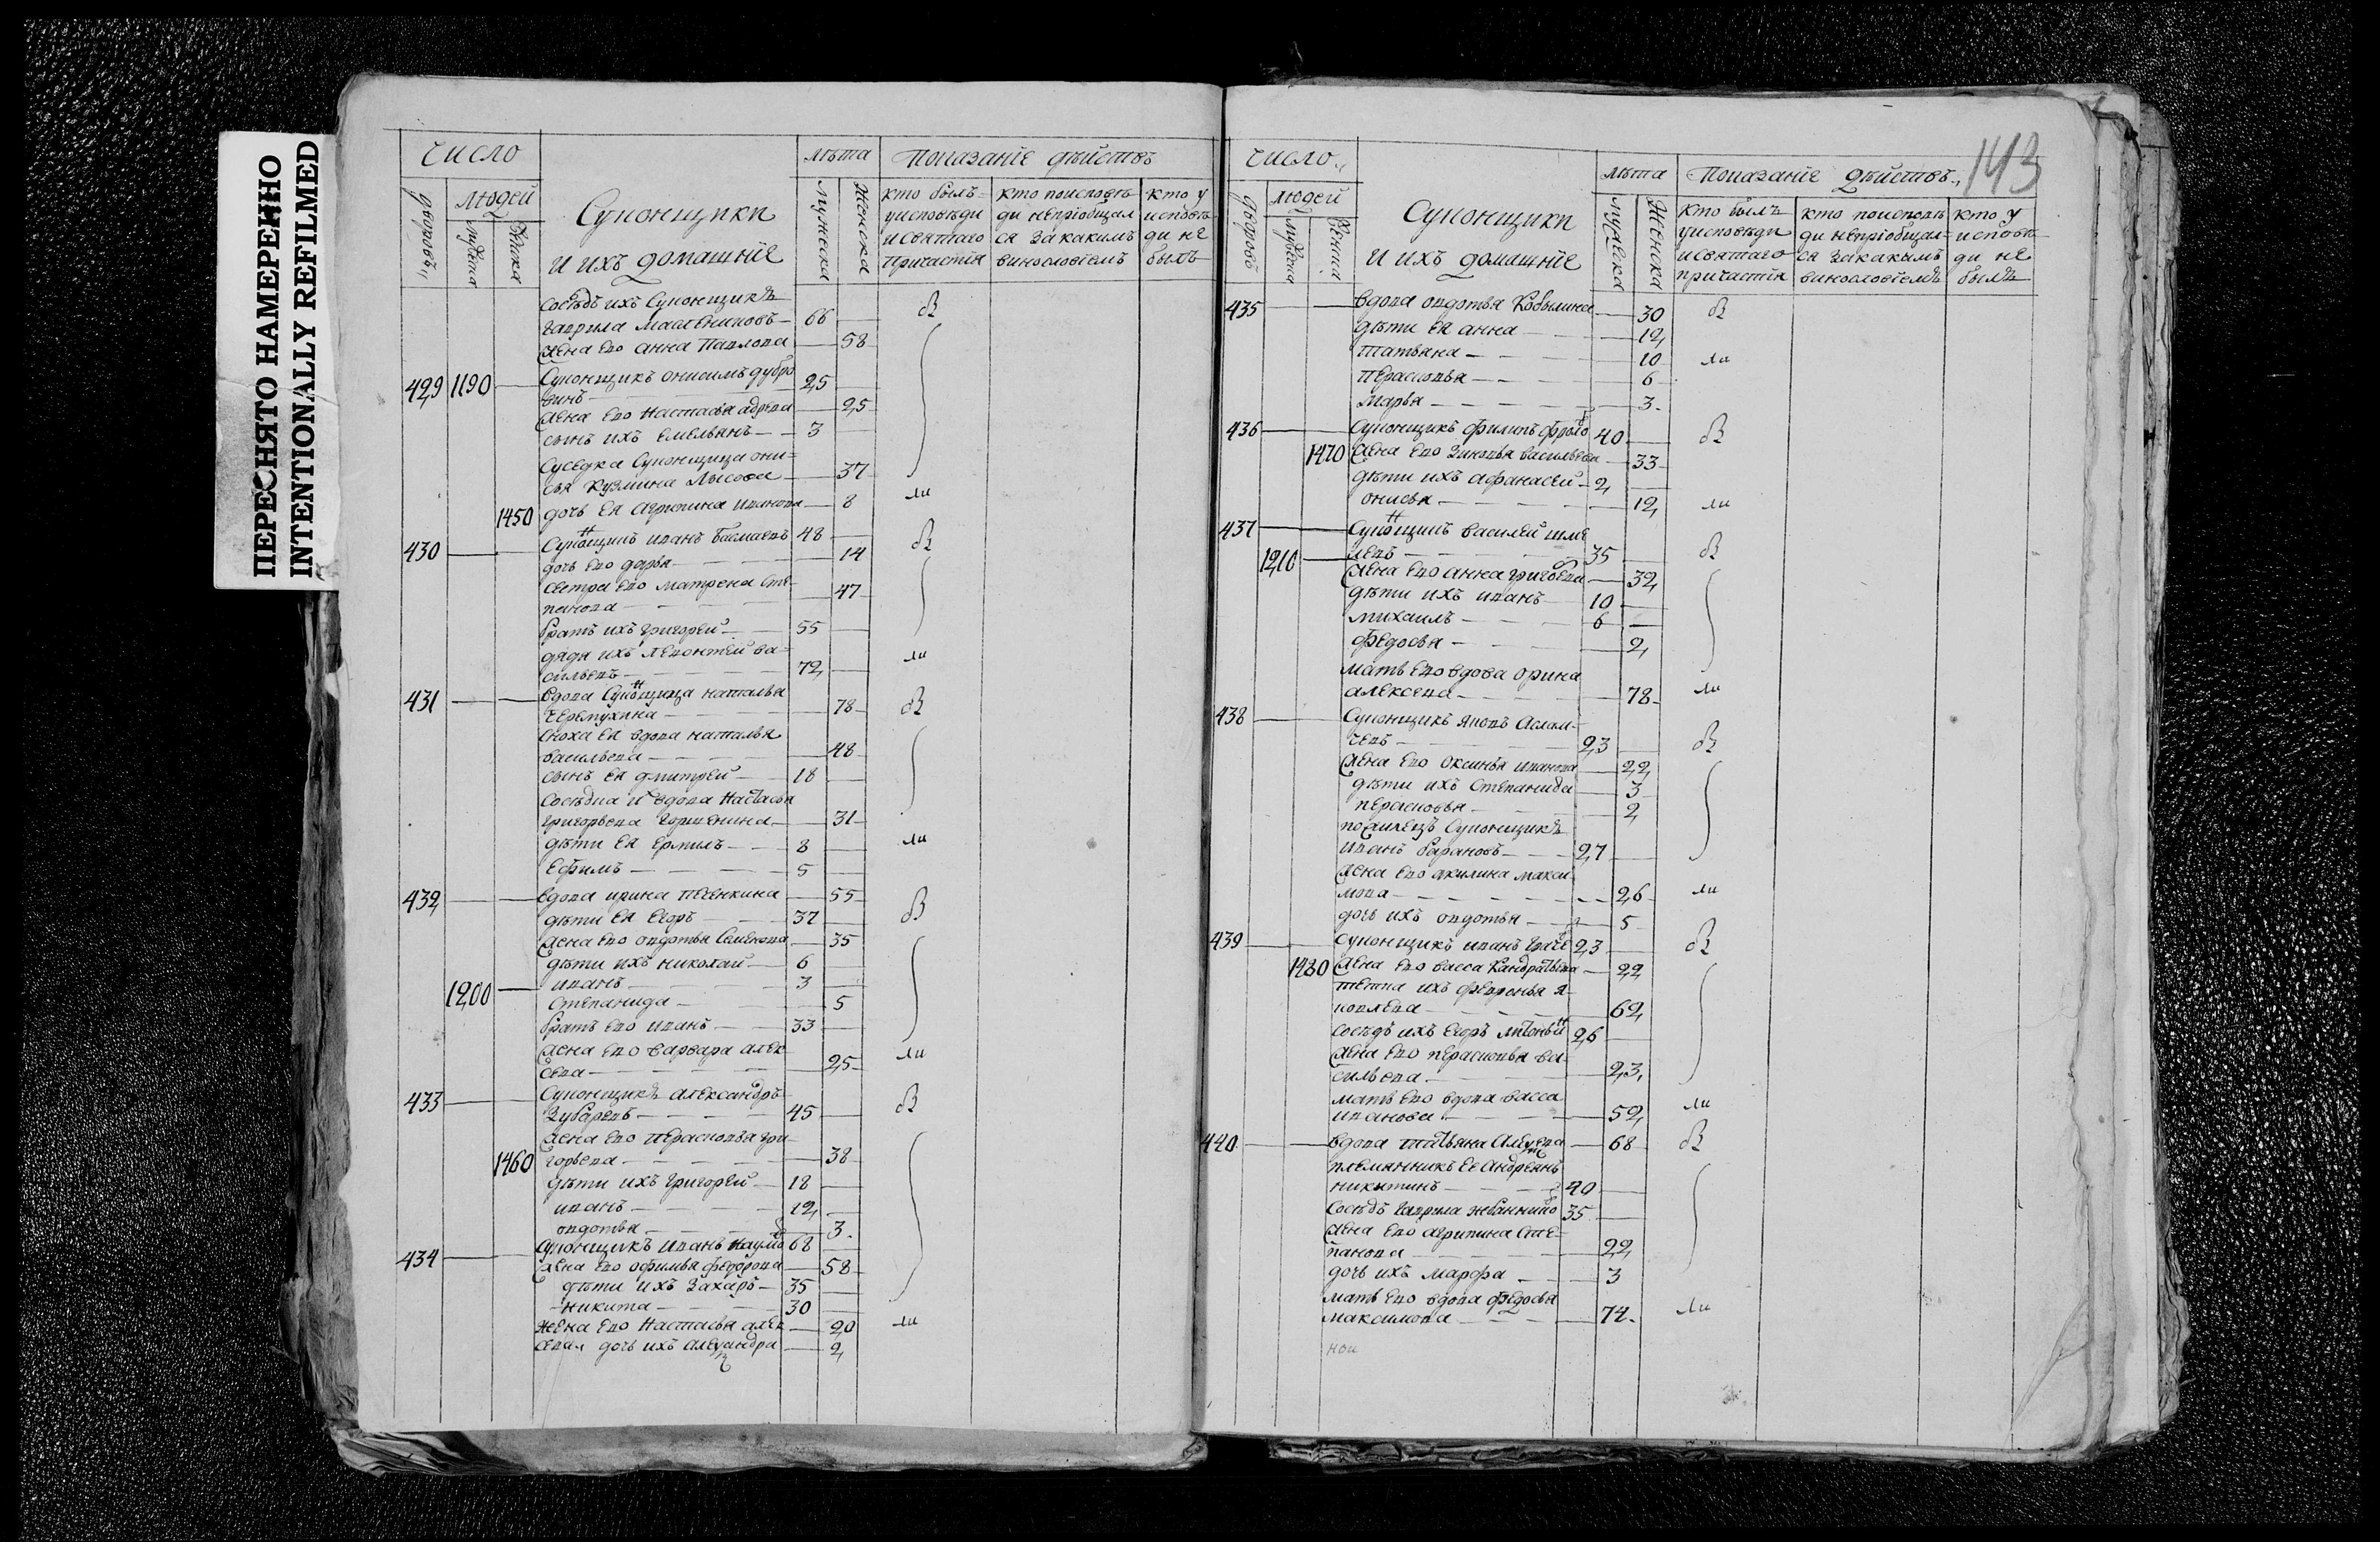 ПЕРЕСНЯТО НАМЕРЕННО
INTENTIONALLY REFILMED
число
людей
дворовъ
мужеска
женска
Суконщики
и ихъ домашніе
лѣта
мужеска
женска
Показаніе действъ
кто былъ
у исповѣди
и святаго
причастія
кто по исповѣ
ди непріобщал
ся за какимъ
винословіемъ
кто у
исповѣ
ди не
былъ
сосѣдъ ихъ Суконщикъ
гаврила Маслениковъ 66
жена его анна Павлова 58
429 1190 Суконщикъ онисимъ дубро
винъ 25
жена его Настасья адреева 25
сынъ ихъ Емельянъ 3
суседка Суконщица они=
сья кузмина Лысова 37
1450 дочь ея Агрипина иванова 8
430 Суконщикъ иванъ 48
дочь его дарья 14
сестра его матрена сте
панова 47
братъ ихъ григорей 55
дядя ихъ леронтей ва=
сильевъ 72
431 вдова Суконщица наталья
черемухина 78
сноха ея вдова наталья
васильева 48
сынъ ея дмитрей 18
сосѣдка и вдова Настасья
григорьева горшенина 31
дѣти ея ермилъ 8
Ефимъ 5
432 вдова ирина песенкина 55
дѣти ея Егоръ 37
жена его овдотья Семенова 35
дѣти ихъ николай 6
1200 иванъ 3
степанида 5
братъ его иванъ 33
жена его варвара алек
сева 25
433 Суконщикъ александръ
Зубаревъ 45
жена его перасковья гри
1460 горьева 38
дѣти ихъ григорей 18
иванъ 12
овдотья 3
434 Суконщикъ иванъ наумо 68
жена его офимья федорова 58
дѣти ихъ захаръ 35
никита 30
жена его Настасья алек 20
сева, дочь ихъ александра 2
143
число
людей
дворовъ
мужеска
женска
Суконщики
и ихъ домашніе
лѣта
мужеска
Женска
Показаніе дѣйствъ
кто былъ
у исповѣди
и святаго
причастія
кто по исповѣ
ди непріобщал=
ся за какимъ
винословіемъ
кто у
исповѣ
ди не
былъ
435 вдова овдотья Кобылина 30
дѣти ея анна 12
татьяна 10
перасковья 6
марья 3
436 Суконщикъ филипъ фроло 40
1470 жена его Зиновья васильева 33
дѣти ихъ афанасей 2
онисья 12
437 Суконщикъ василей шме
1210 левъ 35
жена его анна григорева 32
дѣти ихъ иванъ 10
михаилъ 6
федосья 2
мать его вдова орина
алексева 78
438 Суконщикъ яковъ Аслам
чевъ 23
жена его оксинья иванова 22
дѣти ихъ степанида 3
перасковья 2
пожилецъ Суконщикъ
иванъ барановъ 27
жена его акилина макси
мова 26
дочь ихъ овдотья 5
439 Суконщикъ иванъ граче 23
1480 жена его васса Кандратьева 22
тетка ихъ февронья я
ковлева 62
сосѣдъ ихъ Егоръ 26
жена его перасковья ва
сильева 23
мать его вдова васса
иванова 52
440 вдова татьяна 68
племянникъ ее Андреянъ
никитинъ 40
сосѣдъ гаврила 35
жена его агрипина сте=
панова 22
дочь ихъ марфа 3
мать его вдова федосья
максимова 74